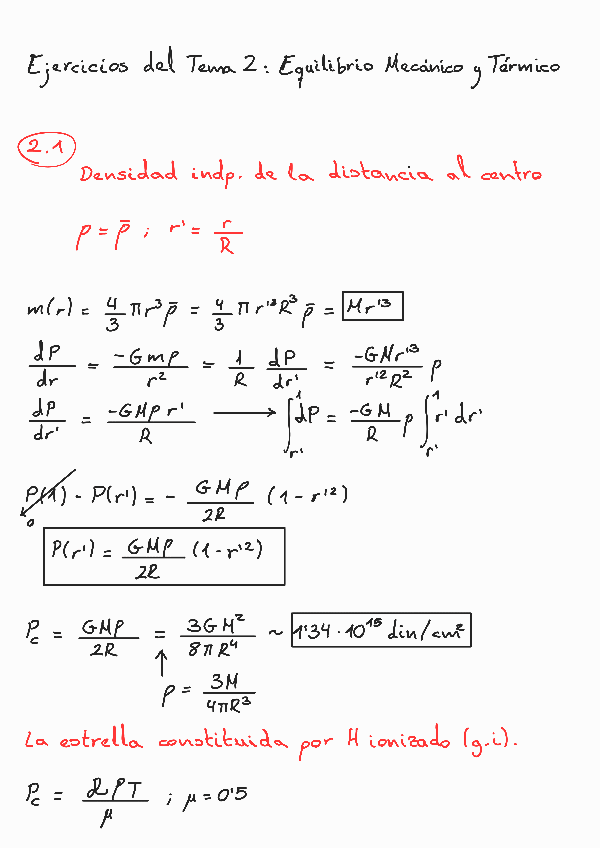 Ejercicios del Tema 2: Equilibrio Mecánico y Térmico
2.1
Densidad indp. de la distancia al centro
ρ = ρ̄ ; r' = r/R
m(r) = 4/3 π r³ ρ̄ = 4/3 π r'³ R³ ρ̄ = M r'³
dP/dr = -Gmρ/r² = 1/R dP/dr' = -GMr'³/r'²R² ρ
dP/dr' = -GMρ r'/R → ∫_{r'}^{1} dP = -GM/R ρ ∫_{r'}^{1} r' dr'
P(1) - P(r') = - GMρ/2R (1 - r'²)
0
P(r') = GMρ/2R (1 - r'²)
P_c = GMρ/2R = 3GM²/8πR⁴ ~ 1'34 · 10¹⁵ din/cm²
ρ = 3M/4πR³
La estrella constituida por H ionizado (g.i).
P_c = ℛρT/μ ; μ = 0'5